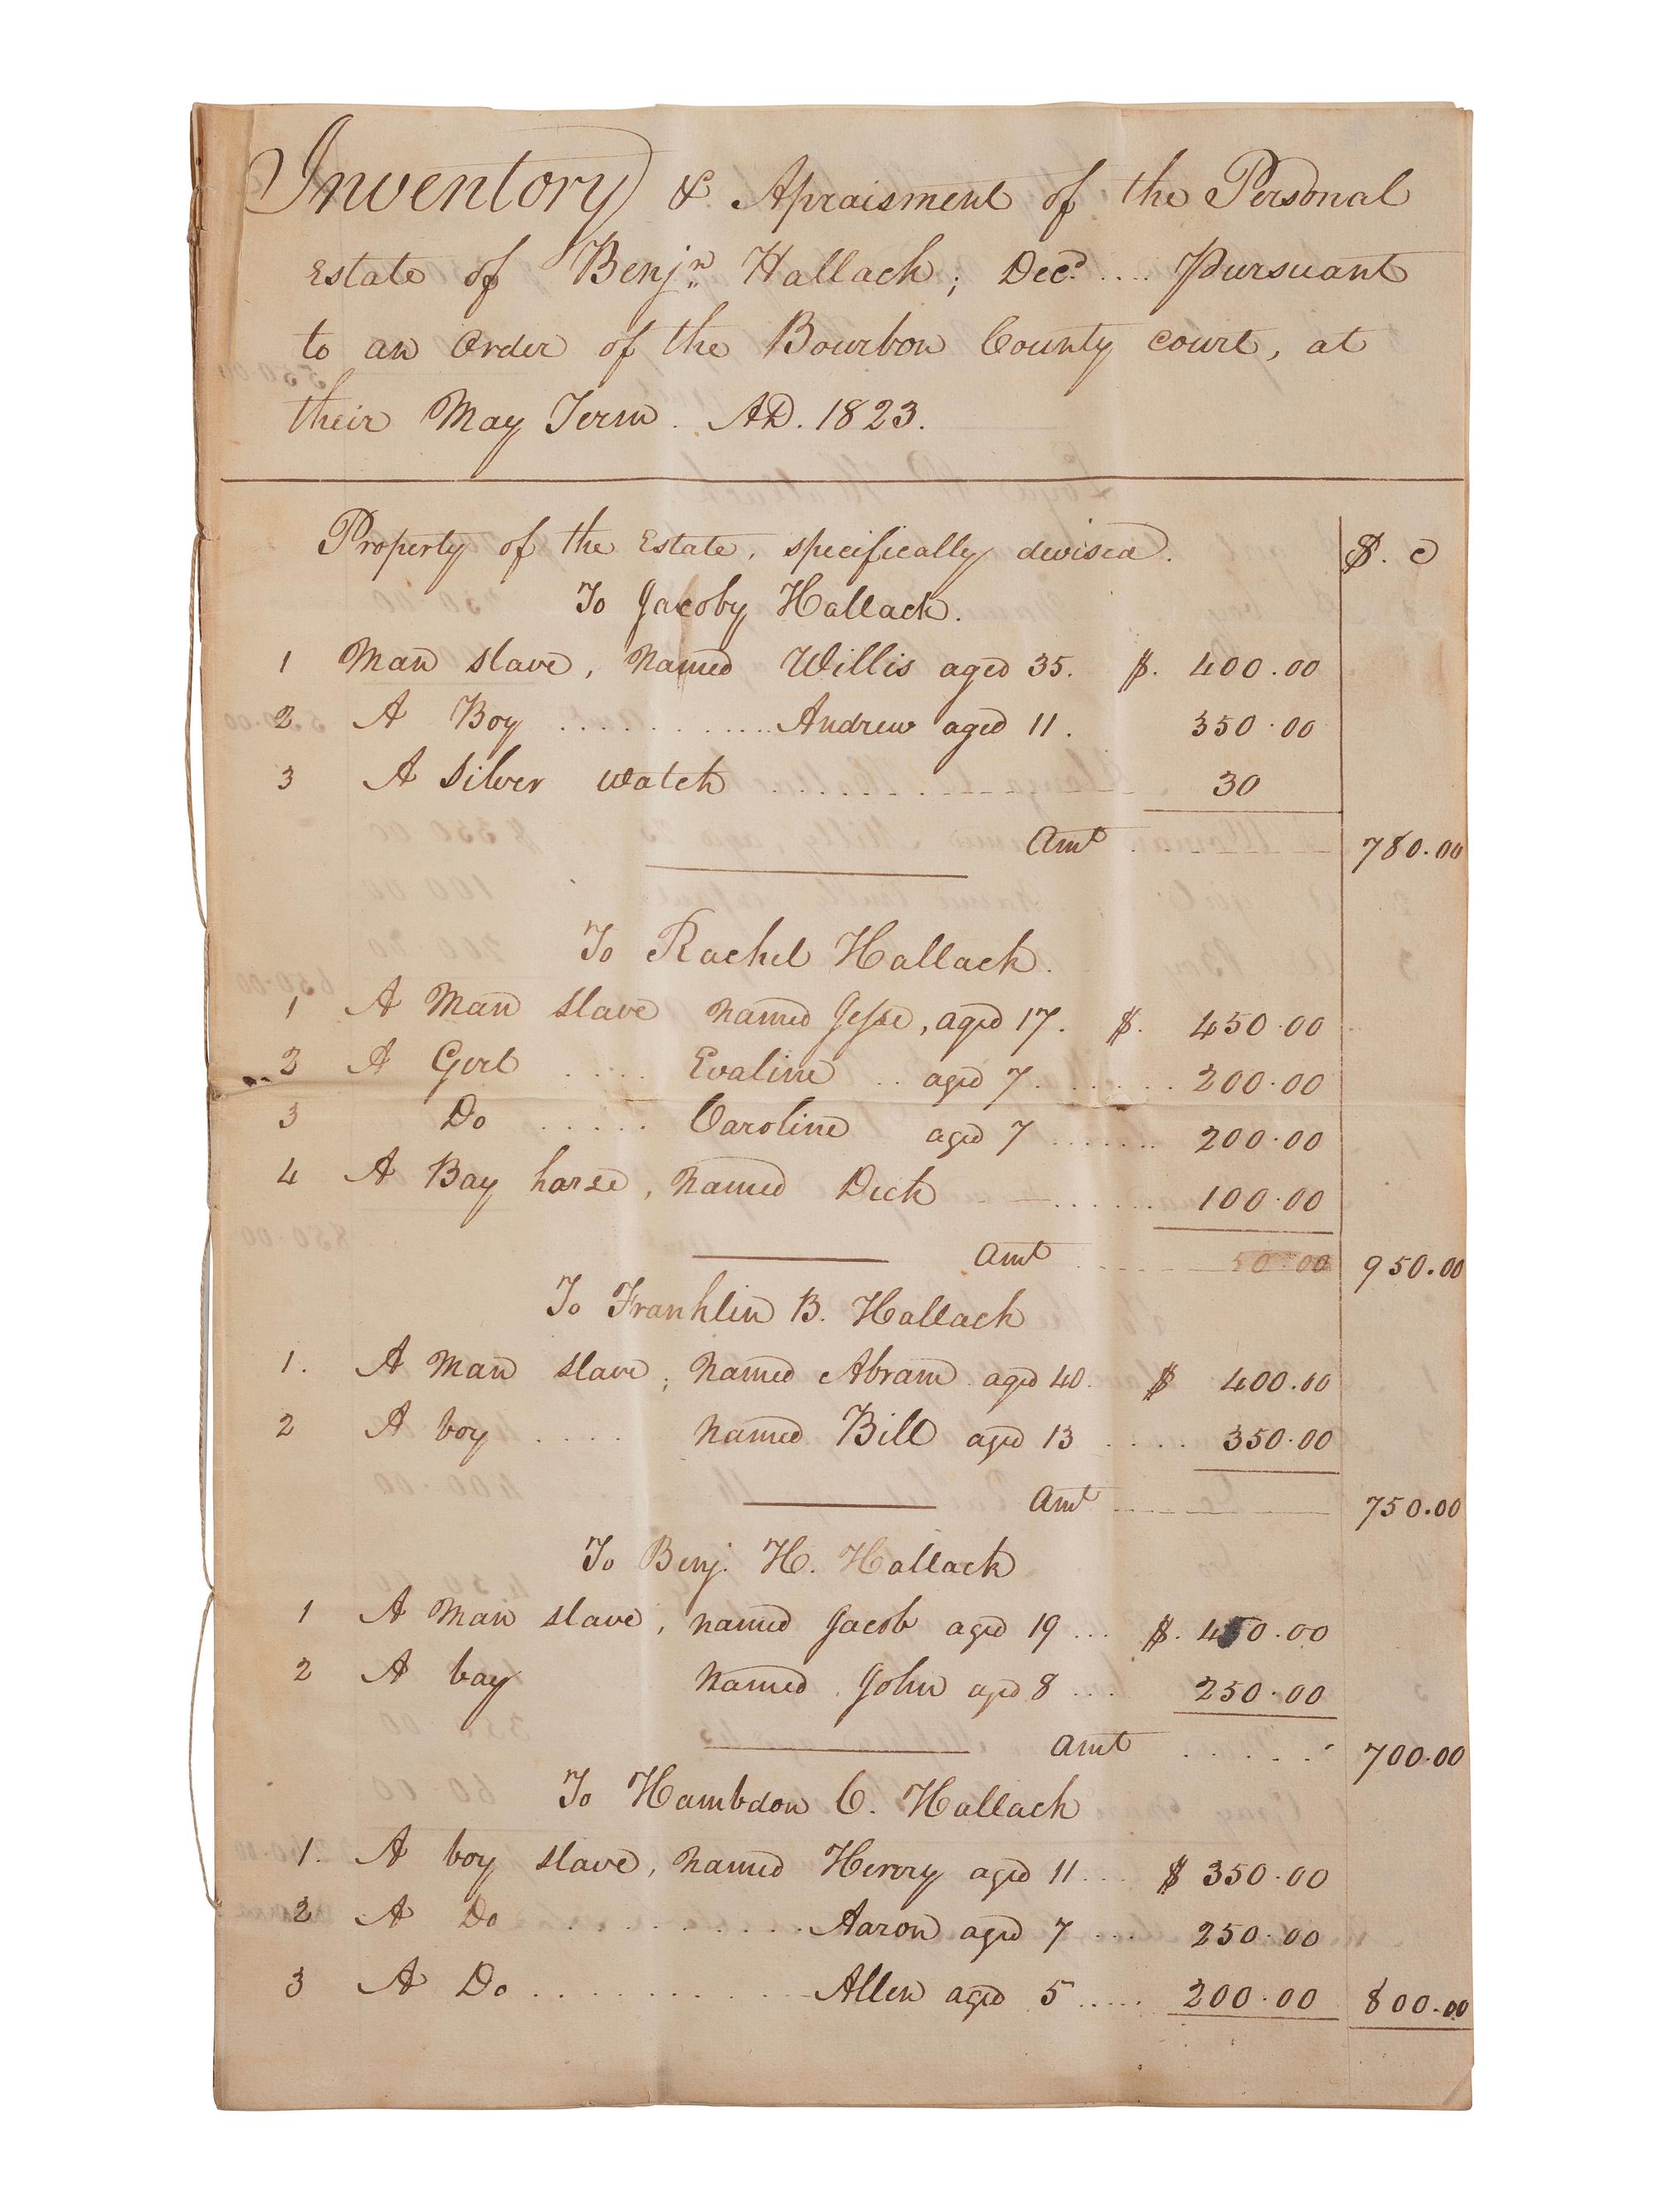 Inventory & Apraisment of the Personal
Estate of Benjn Hallack; Decd .... Pursuant
to an Order of the Bourbon County court, at
their May Term. AD. 1823.
Property of the Estate, specifically devised. $. c
To Jacoby Hallack.
1 Man slave, Named Willis aged 35. $. 400.00
2 A Boy ............ Andrew aged 11. 350.00
3 A Silver watch ............ 30
Amt ...... 780.00
To Rachel Hallack.
1 A Man slave named Jesse, aged 17. $. 450.00
2 A Gerl ..... Evaline .. aged 7....... 200.00
3 Do ..... Caroline aged 7 ...... 200.00
4 A Bay horse, named Dick ...... 100.00
Amt ...... 50.00 950.00
To Franklin B. Hallack
1. A Man slave; named Abram aged 40. $ 400.00
2 A boy .... named Bill aged 13 ..... 350.00
Amt ...... 750.00
To Benj. H. Hallack
1 A Man slave, named Jacob aged 19 ... $. 450.00
2 A boy named John aged 8 ... 250.00
Amt ...... 700.00
To Hambdon C. Hallack
1. A boy slave, named Henry aged 11... $ 350.00
2 A Do ........... Aaron aged 7 .... 250.00
3 A Do ........... Allen aged 5 ..... 200.00 800.00